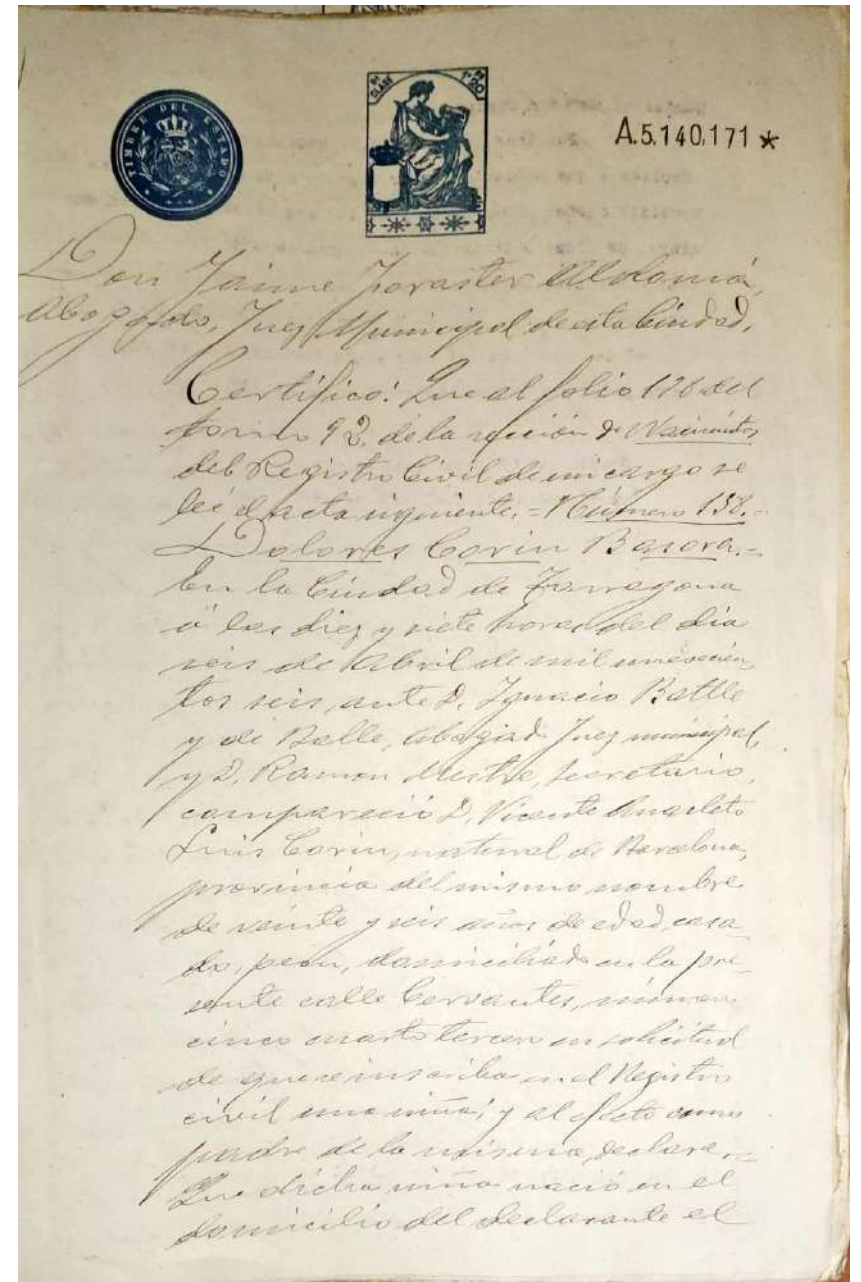 TIMBRE DEL ESTADO
CLASE
A.5.140.171 *
Don Jaime Foraster Aldomá,
Abogado, Juez Municipal de esta Ciudad,
Certifico: Que al folio del
tomo 92, de la sección de Nacimientos
del Registro Civil de mi cargo se
lée el acta siguiente. = Número 158. =
Dolores Corin Basora. =
En la Ciudad de Tarragona
á las diez y siete horas del dia
seis de Abril de mil novecien
tos seis, ante D. Ignacio Batlle
y de Balle, Abogado Juez municipal,
y D. Ramon Mestre, Secretario,
compareció D. Vicente Anacleto
Luis Corin, natural de Barcelona,
provincia del mismo nombre
de veinte y seis años de edad, casa
do, peon, domiciliado en la pre
sente calle Cervantes, número
cinco cuarto tercero en solicitud
de que se inscriba en el Registro
civil una niña; y al efecto como
padre de la misma, declaro. =
Que dicha niña nació en el
domicilio del declarante el